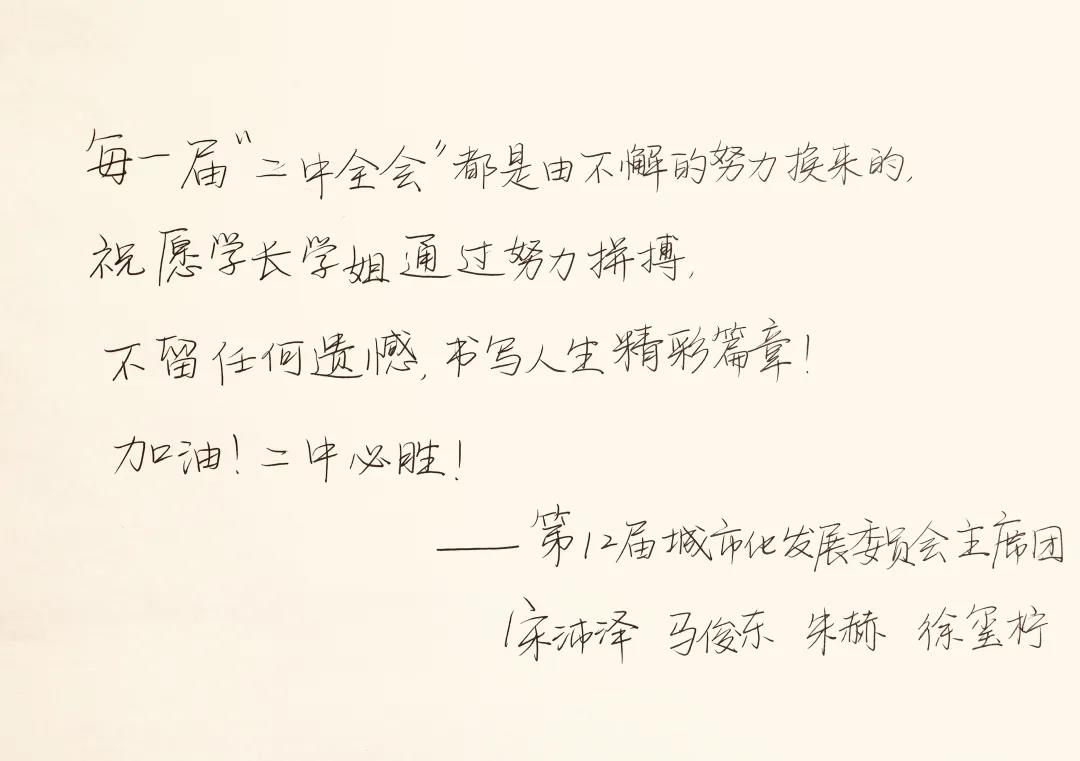 每一届“二中全会”都是由不懈的努力换来的,
祝愿学长学姐通过努力拼搏,
不留任何遗憾,书写人生精彩篇章!
加油!二中必胜!
——第12届城市化发展委员会主席团
宋沛泽 马俊东 朱赫 徐玺柠